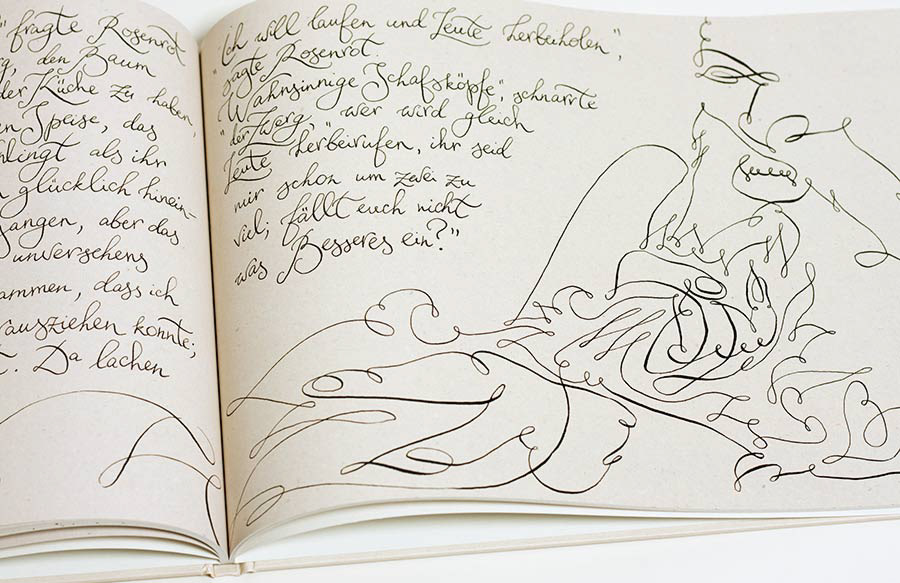 " fragte Rosenrot
g, den Baum
der Küche zu haben,
en Speise, das
hlingt als ihr
n glücklich hinein-
gangen, aber das
unversehens
ammen, dass ich
rausziehen konnte;
t. Da lachen
"Ich will laufen und Leute herbeiholen",
sagte Rosenrot.
"Wahnsinnige Schafsköpfe", schnarrte
der Zwerg, "wer wird gleich
Leute herbeirufen, ihr seid
mir schon um zwei zu
viel; fällt euch nicht
was Besseres ein?"